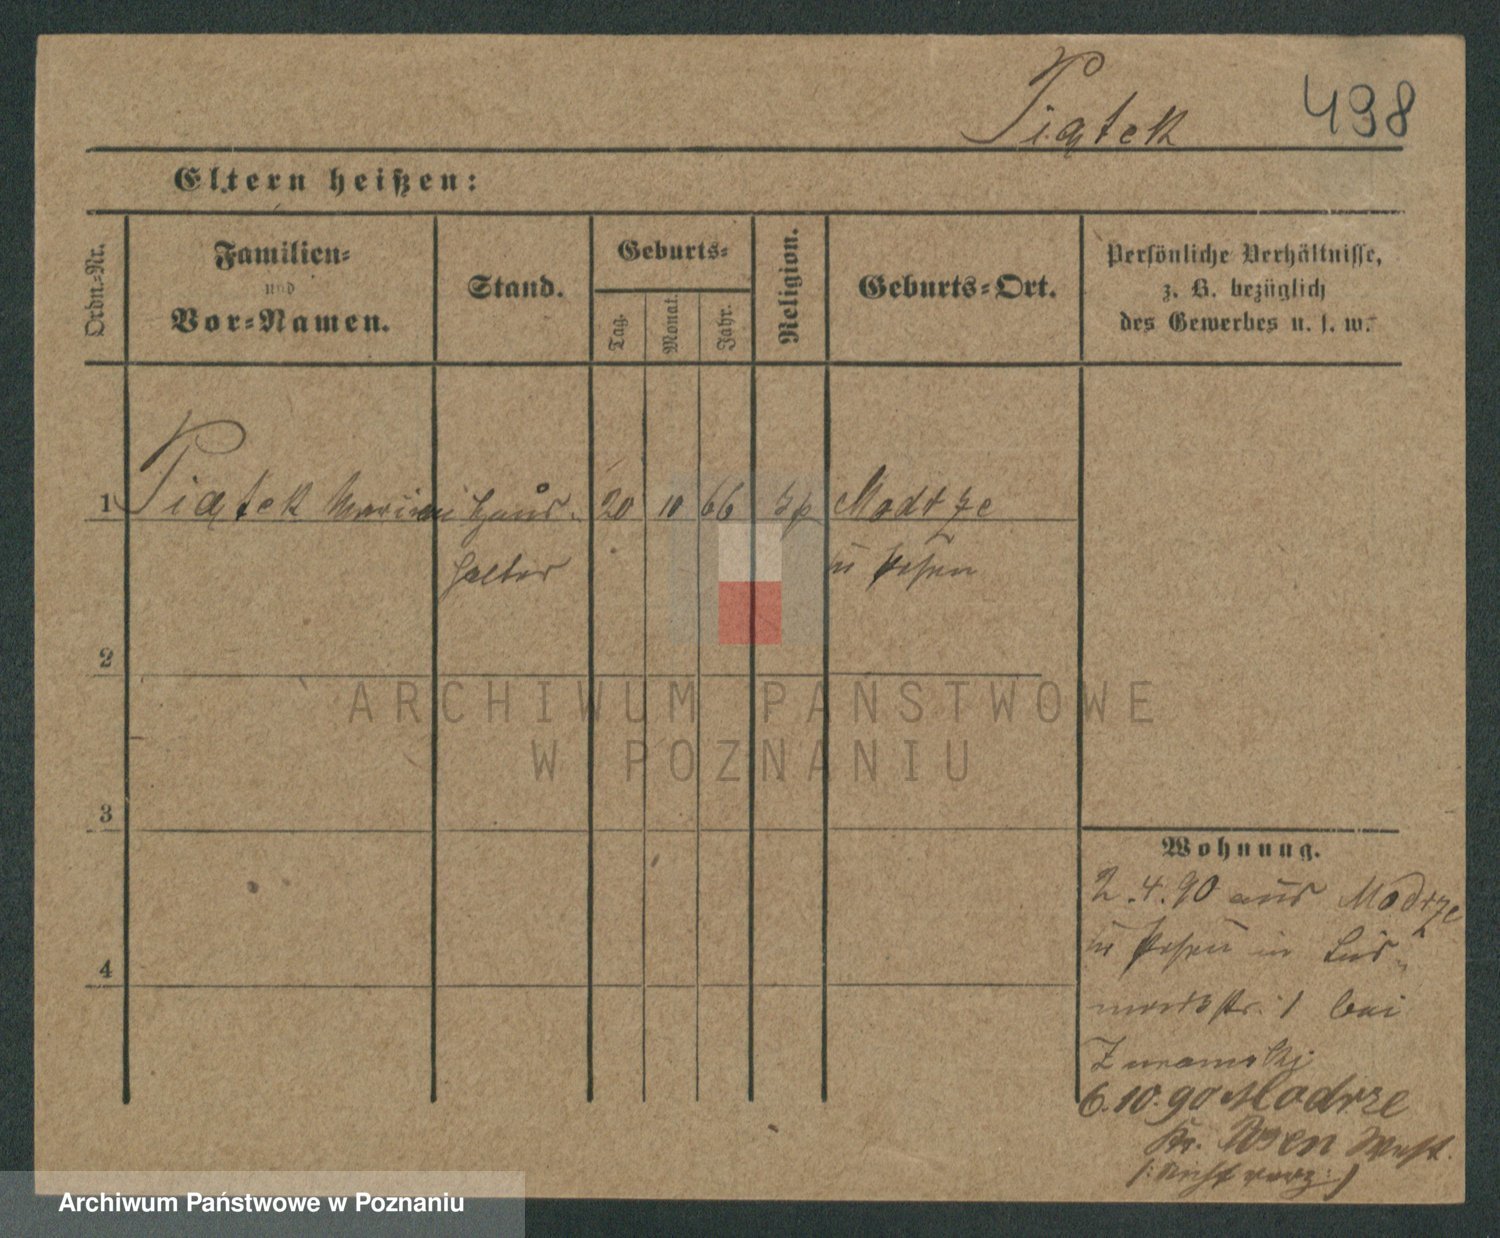 Piątek 498
Eltern heißen:
Ordn.-Nr.
Familien-
und
Vor-Namen.
Stand.
Geburts-
Tag.
Monat.
Jahr.
Religion.
Geburts-Ort.
Persönliche Verhältnisse,
z. B. bezüglich
des Gewerbes u. s. w.
1 Piątek Haus- 20 10 66 Modrze
halter Posen
2
ARCHIWUM PAŃSTWOWE
W POZNANIU
3
Wohnung.
2.4.90 aus Modrze
Posen in
4
1 bei
6.10.90 Modrze
Kr. Posen West.
Archiwum Państwowe w Poznaniu